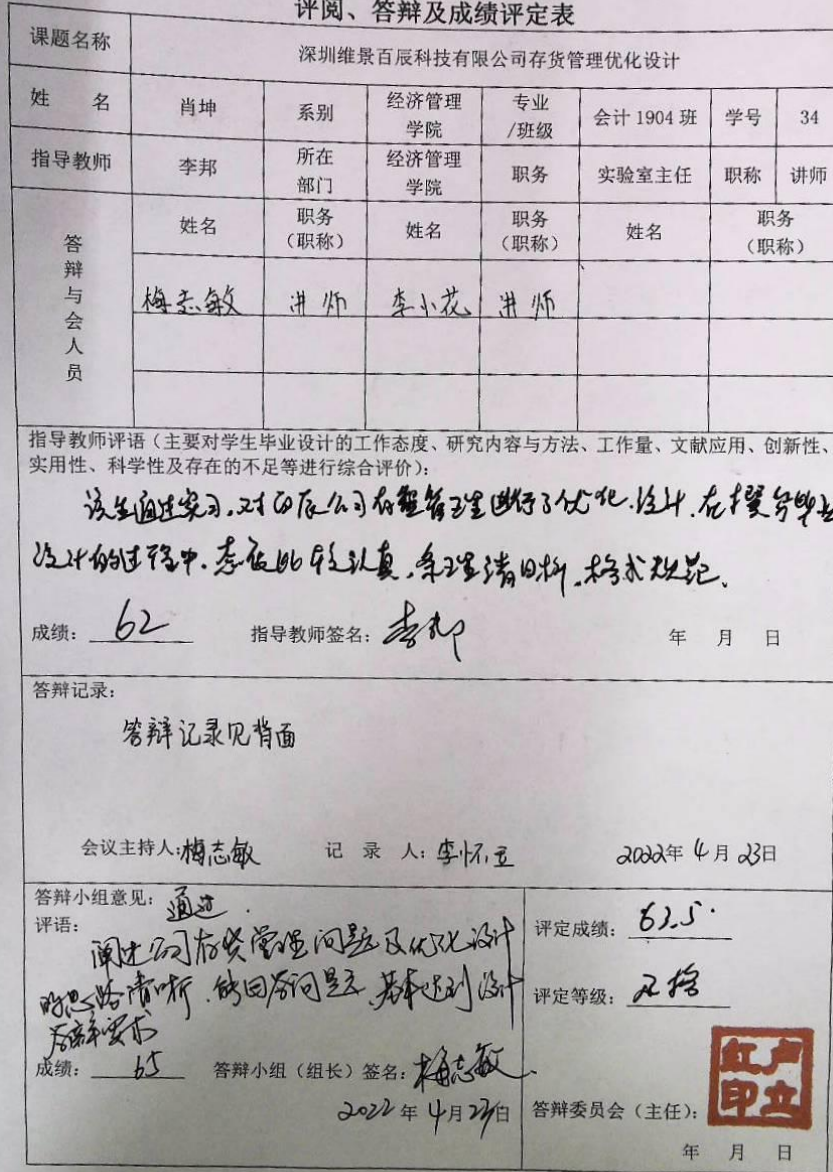 评阅、答辩及成绩评定表
课题名称 深圳维景百辰科技有限公司存货管理优化设计
姓 名 肖坤 系别 经济管理学院 专业/班级 会计1904班 学号 34
指导教师 李邦 所在部门 经济管理学院 职务 实验室主任 职称 讲师
答辩与会人员 姓名 职务(职称) 姓名 职务(职称) 姓名 职务(职称)
梅志敏 讲师 李小花 讲师
指导教师评语(主要对学生毕业设计的工作态度、研究内容与方法、工作量、文献应用、创新性、
实用性、科学性及存在的不足等进行综合评价):
该生通过实习,对百辰公司存货管理进行了优化设计,在撰写毕业
设计的过程中,态度比较认真,条理清晰,格式规范。
成绩: 62 指导教师签名: 李邦 年 月 日
答辩记录:
答辩记录见背面
会议主持人:梅志敏 记 录 人:李怀玉 2022年4月23日
答辩小组意见: 通过.
评语:
阐述公司存货管理问题及优化设计
的思路清晰,能回答问题,基本达到设计
答辩要求
成绩: 65 答辩小组(组长)签名: 梅志敏
2022年4月23日
评定成绩: 63.5
评定等级: 及格
答辩委员会(主任): 卢立红印
年 月 日